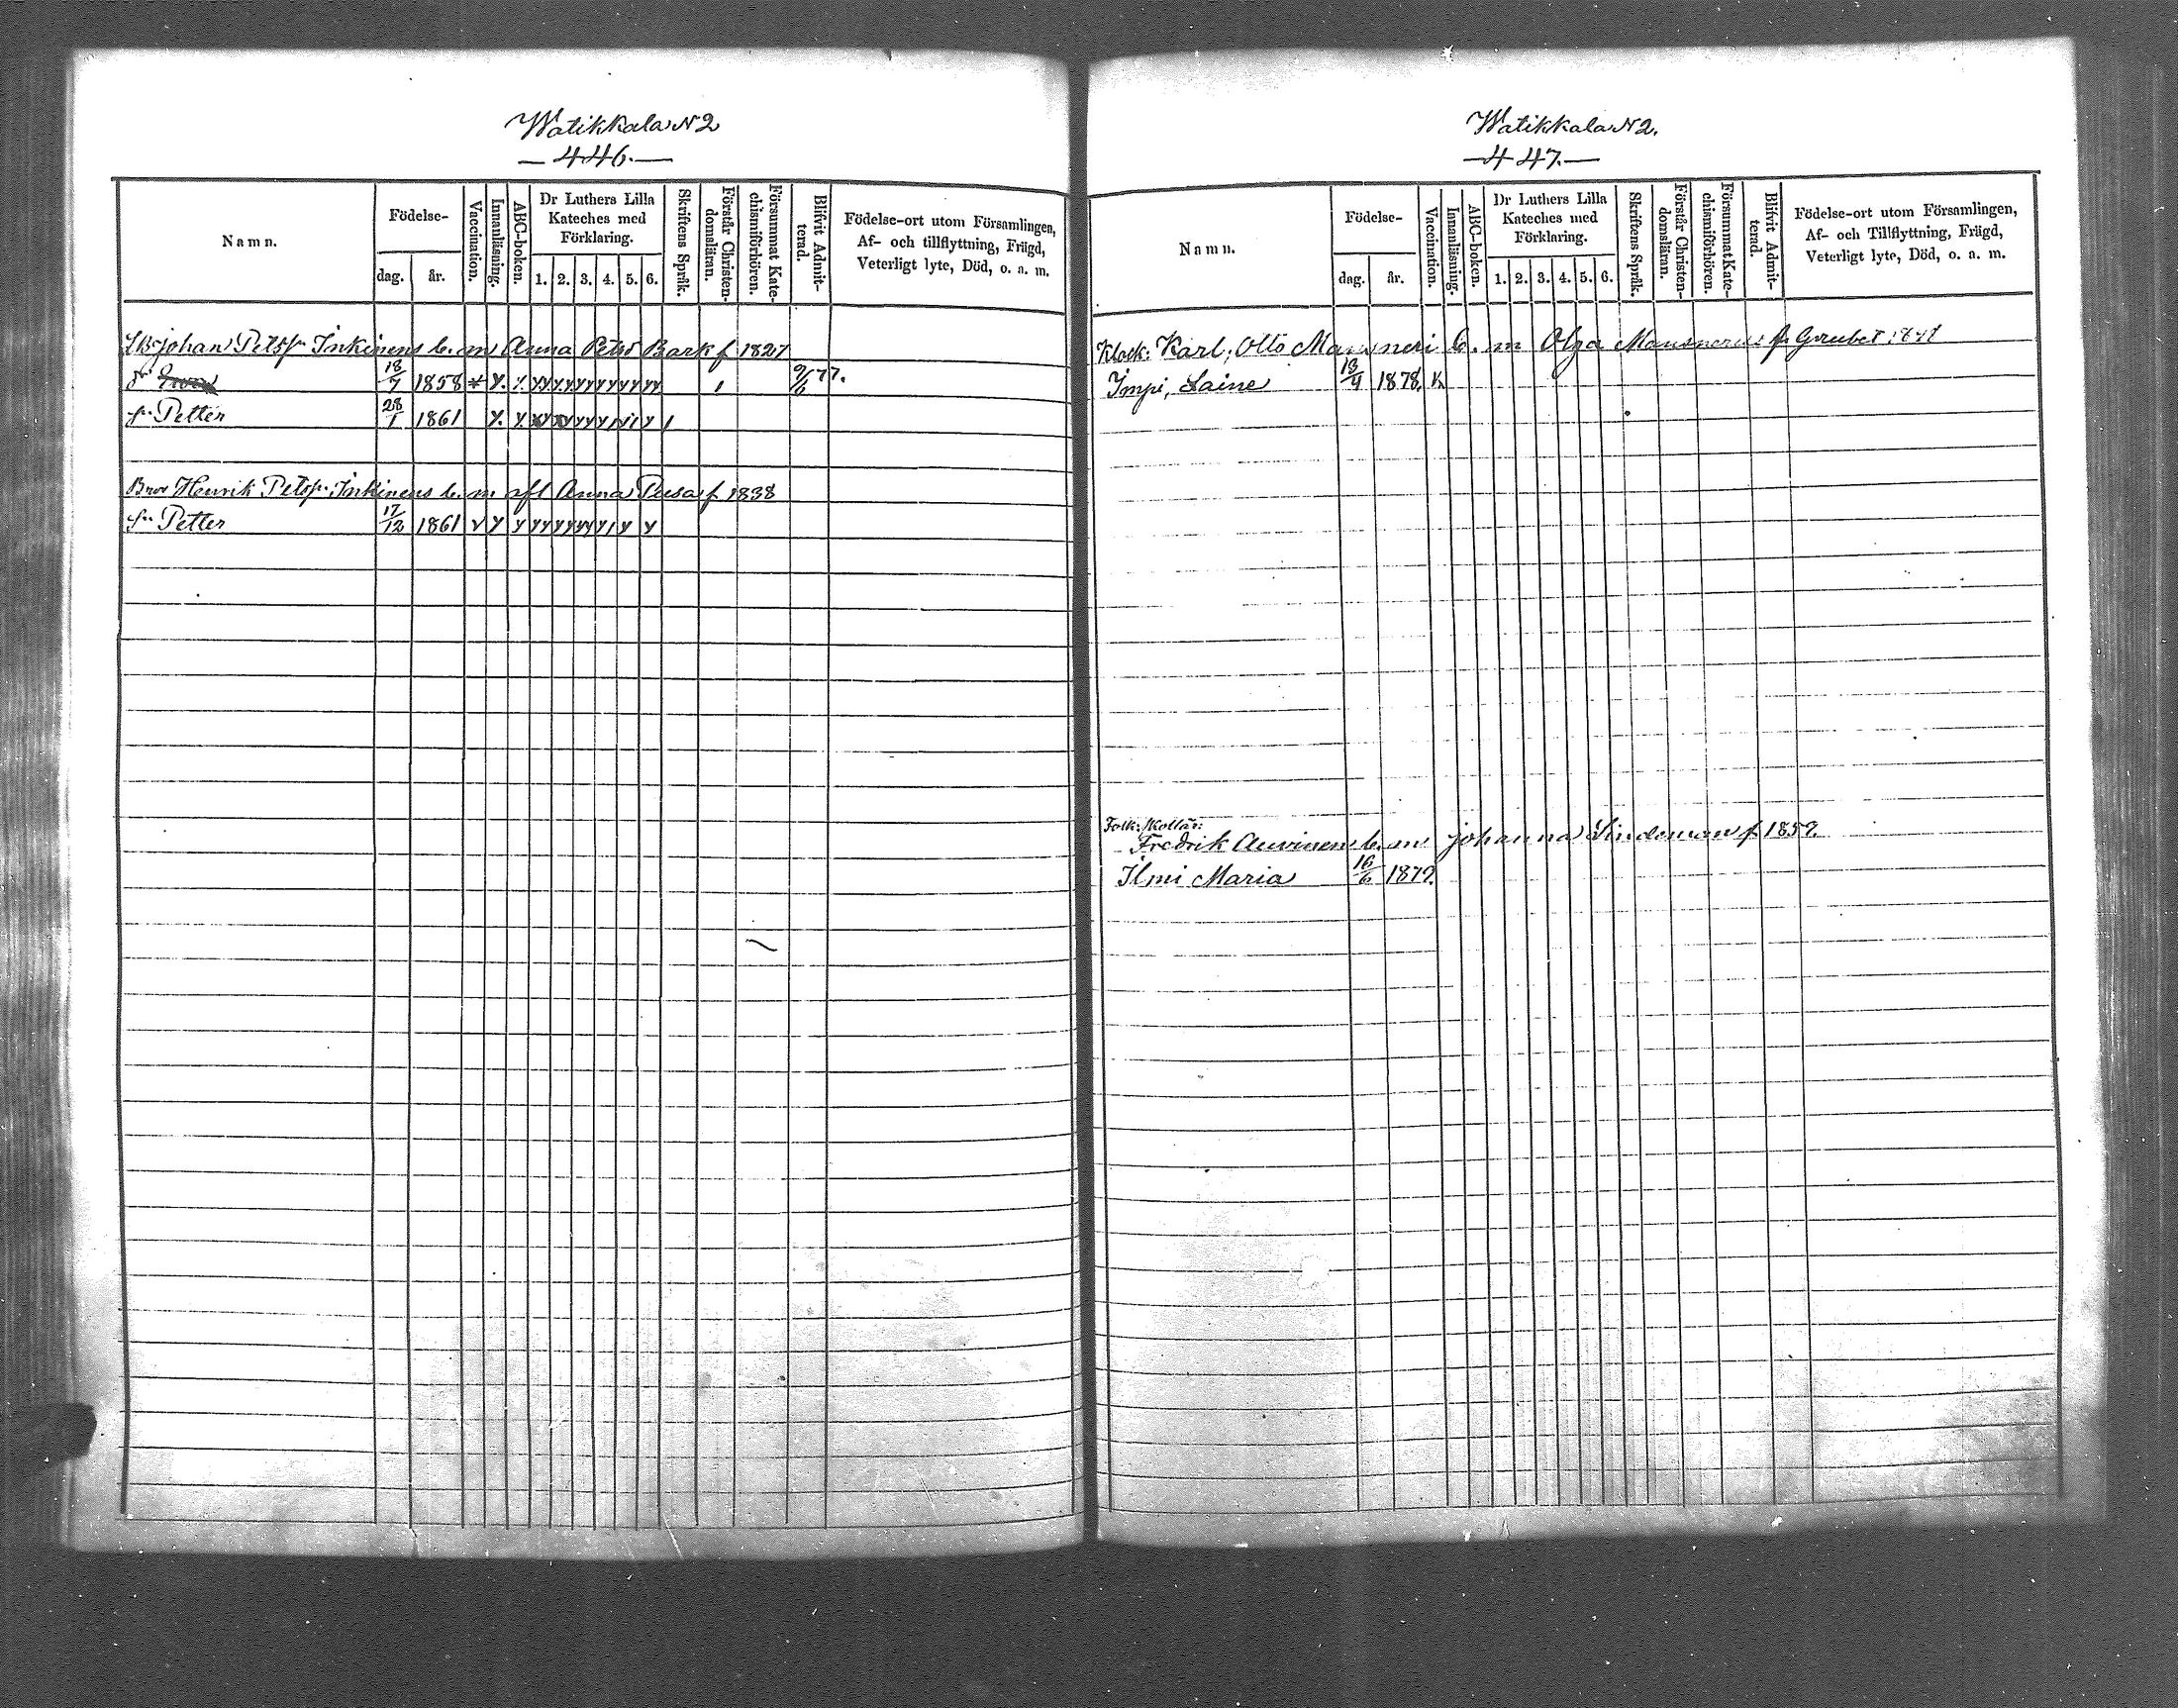 Watikkala N2
— 446. —
Namn.
Födelse-
dag.
år.
Vaccination.
Innanläsning.
ABC-boken.
Dr Luthers Lilla
Kateches med
Förklaring.
1. 2. 3. 4. 5. 6.
Skriftens Språk.
Förstår Christen-
domsläran.
Försummat Kate-
chismiförhören.
Blifvit Admit-
terad.
Födelse-ort utom Församlingen,
Af- och tillflyttning, Frägd,
Veterligt lyte, Död, o. a. m.
Johan Petsf. Inkinens b. m Anna Petsd Bark f 1827
18/7 1858 9/6 77.
Petter 28/1 1861
Bror Henrik Petsf. Inkinens b. m afl Anna Pusa f 1838
Petter 17/12 1861
Watikkala N2.
— 447. —
Namn.
Födelse-
dag.
år.
Vaccination.
Innanläsning.
ABC-boken.
Dr Luthers Lilla
Kateches med
Förklaring.
1. 2. 3. 4. 5. 6.
Skriftens Språk.
Förstår Christen-
domsläran.
Försummat Kate-
chismiförhören.
Blifvit Admit-
terad.
Födelse-ort utom Församlingen,
Af- och Tillflyttning, Frägd,
Veterligt lyte, Död, o. a. m.
Klock: Karl, Otto Mausneri b. m Olga Mausnerus f. Grubet
Impi, Laine 13/4 1878.
Folk: Skollär:
Fredrik Auvinens b. m Johanna Lindeman f. 1852
Ilmi Maria 16/6 1879.